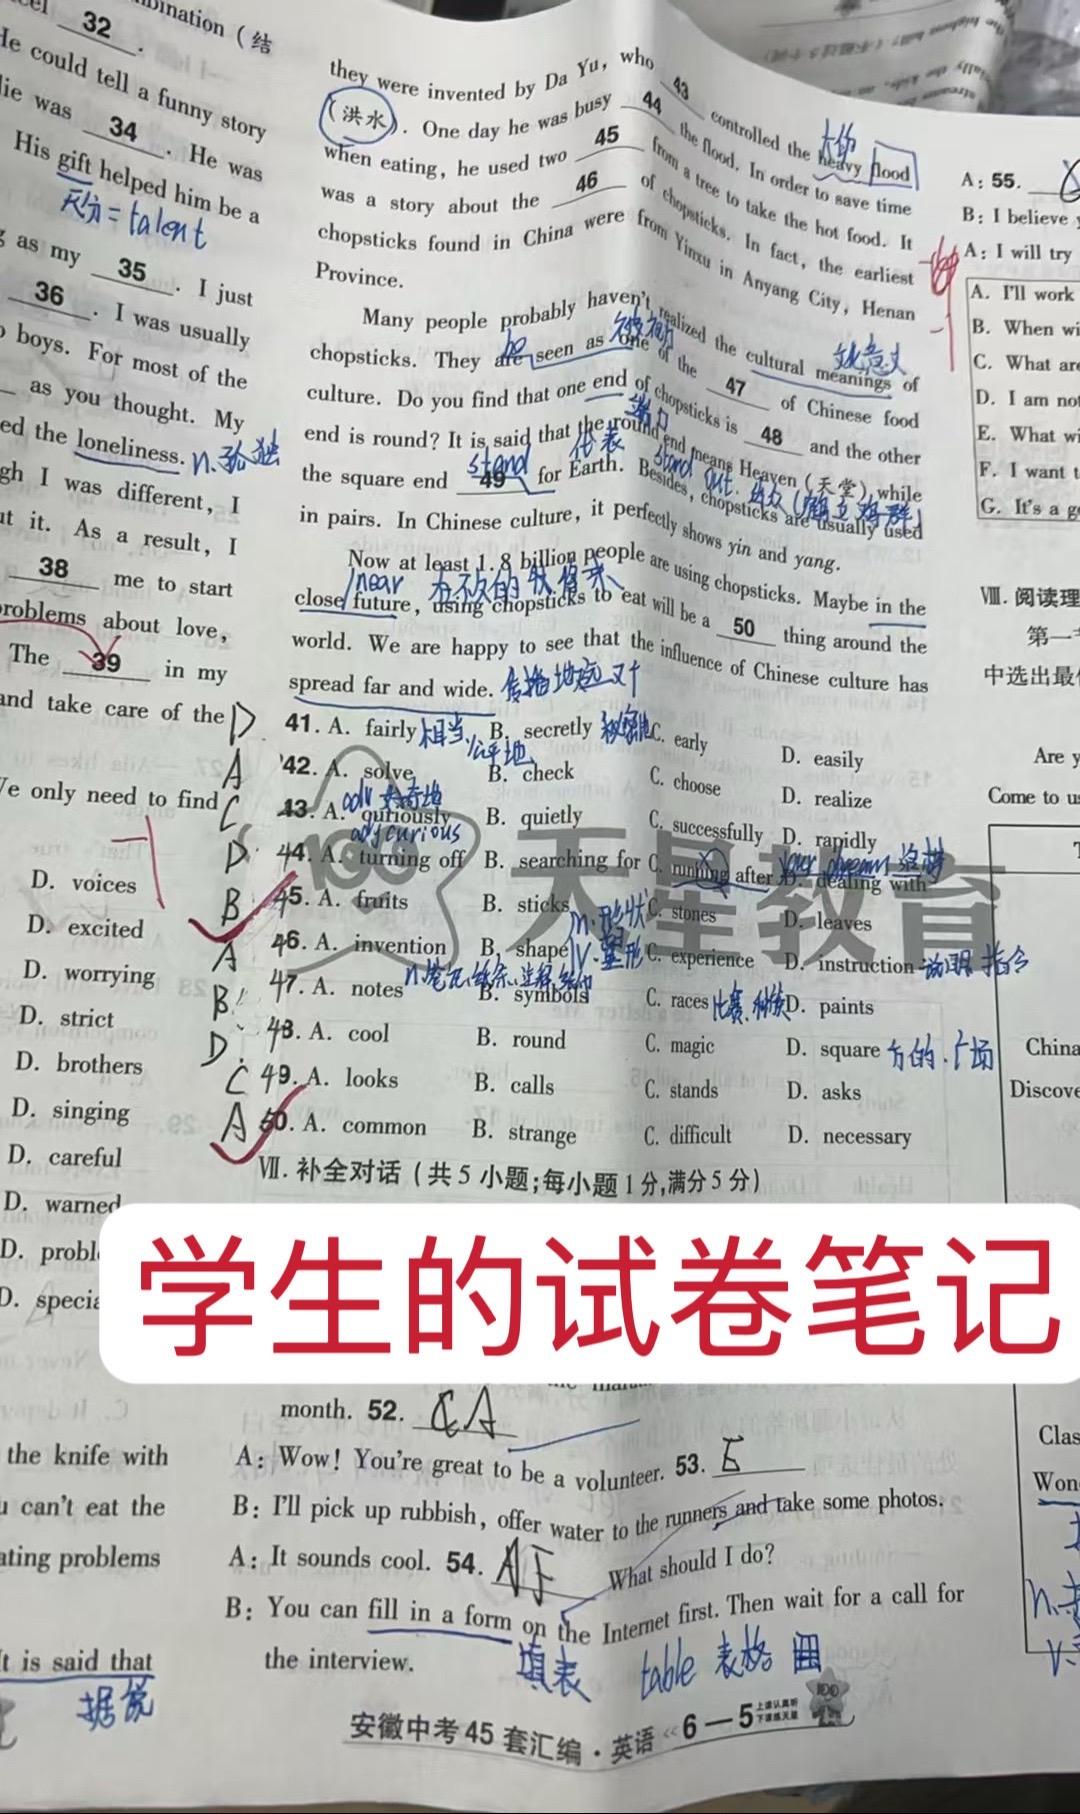 bination (结
32 .
He could tell a funny story
34 . He was
His gift helped him be a
天分=talent
as my 35 . I just
36 . I was usually
boys. For most of the
as you thought. My
ed the loneliness. n.孤独
gh I was different, I
ut it. As a result, I
38 me to start
problems about love,
The 39 in my
and take care of the
We only need to find
D. voices
D. excited
D. worrying
D. strict
D. brothers
D. singing
D. careful
D. warned
the knife with
can't eat the
ating problems
It is said that
据说
they were invented by Da Yu, who 43 controlled the heavy flood
(洪水). One day he was busy 44 the flood. In order to save time
when eating, he used two 45 from a tree to take the hot food. It
was a story about the 46 of chopsticks. In fact, the earliest
chopsticks found in China were from Yinxu in Anyang City, Henan
Province.
Many people probably haven't realized the cultural meanings of
chopsticks. They are seen as one of the 47 of Chinese food
culture. Do you find that one end of chopsticks is 48 and the other
end is round? It is said that the round end means Heaven (天堂), while
the square end 49 for Earth. Besides, chopsticks are usually used
stand 代表
stand out
in pairs. In Chinese culture, it perfectly shows yin and yang.
Now at least 1.8 billion people are using chopsticks. Maybe in the
/near 在不久的将来
close future, using chopsticks to eat will be a 50 thing around the
world. We are happy to see that the influence of Chinese culture has
spread far and wide. 传播地远又广
D 41. A. fairly 相当,公平地 B. secretly 秘密地 C. early D. easily
A 42. A. solve B. check C. choose D. realize
adv 好奇地
C 43. A. curiously B. quietly C. successfully D. rapidly
adj curious
D 44. A. turning off B. searching for C. running after D. dealing with
your dream 追梦
B 45. A. fruits B. sticks C. stones D. leaves
A 46. A. invention B. shape C. experience D. instruction 说明 指令
n.形状
v.塑形
B 47. A. notes B. symbols C. races 比赛,种族 D. paints
D 48. A. cool B. round C. magic D. square 方的.广场
C 49. A. looks B. calls C. stands D. asks
A 50. A. common B. strange C. difficult D. necessary
100 天星教育
Ⅶ. 补全对话 (共 5 小题;每小题 1 分,满分 5 分)
学生的试卷笔记
month. 52. A
A: Wow! You're great to be a volunteer. 53. E
B: I'll pick up rubbish, offer water to the runners and take some photos.
A: It sounds cool. 54. F What should I do?
B: You can fill in a form on the Internet first. Then wait for a call for
the interview. 填表 table 表格
安徽中考 45 套汇编·英语 6—5 上课认真听 下课练天星
A: 55.
B: I believe
A: I will try
A. I'll work
B. When wi
C. What are
D. I am not
E. What wi
F. I want t
G. It's a g
Ⅷ. 阅读理
第一
中选出最
Are y
Come to u
China
Discove
Clas
Won